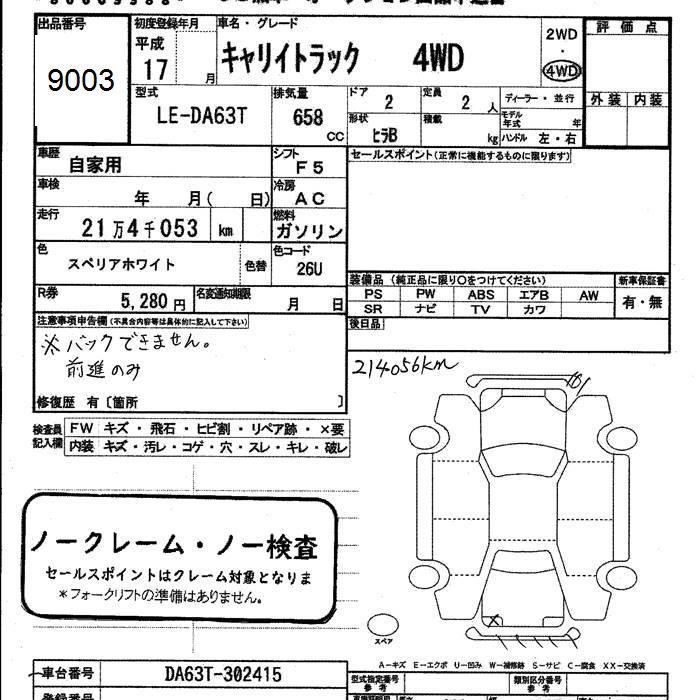 出品番号
9003
初度登録年月
平成
17 月
車名・グレード
キャリイトラック 4WD
2WD
・
4WD
評価点
外装 内装
型式
LE-DA63T
排気量
658
CC
ドア
2
定員
2 人
ディーラー・並行
形状
ヒラB
積載
kg
モデル年式 年
ハンドル 左・右
車歴
自家用
シフト
F5
セールスポイント(正常に機能するものに限ります)
車検
年 月( 日)
冷房
AC
走行
21万4千053 km
燃料
ガソリン
色
スペリアホワイト
色替
色コード
26U
装備品(純正品に限り〇をつけてください)
新車保証書
PS PW ABS エアB AW
SR ナビ TV カワ
有・無
R券
5,280 円
名変通知期限
月 日
後日品
注意事項申告欄(不具合内容等は具体的に記入して下さい)
※バックできません。
前進のみ
修復歴 有〔箇所 〕
214056km
検査員記入欄
FW キズ・飛石・ヒビ割・リペア跡・×要
内装 キズ・汚レ・コゲ・穴・スレ・キレ・破レ
ノークレーム・ノー検査
セールスポイントはクレーム対象となりま
*フォークリフトの準備はありません。
スペア
A-キズ E-エクボ U-凹み W-補修跡 S-サビ C-腐食 XX-交換済
車台番号
DA63T-302415
型式指定番号
参考
類別区分番号
参考
登録番号